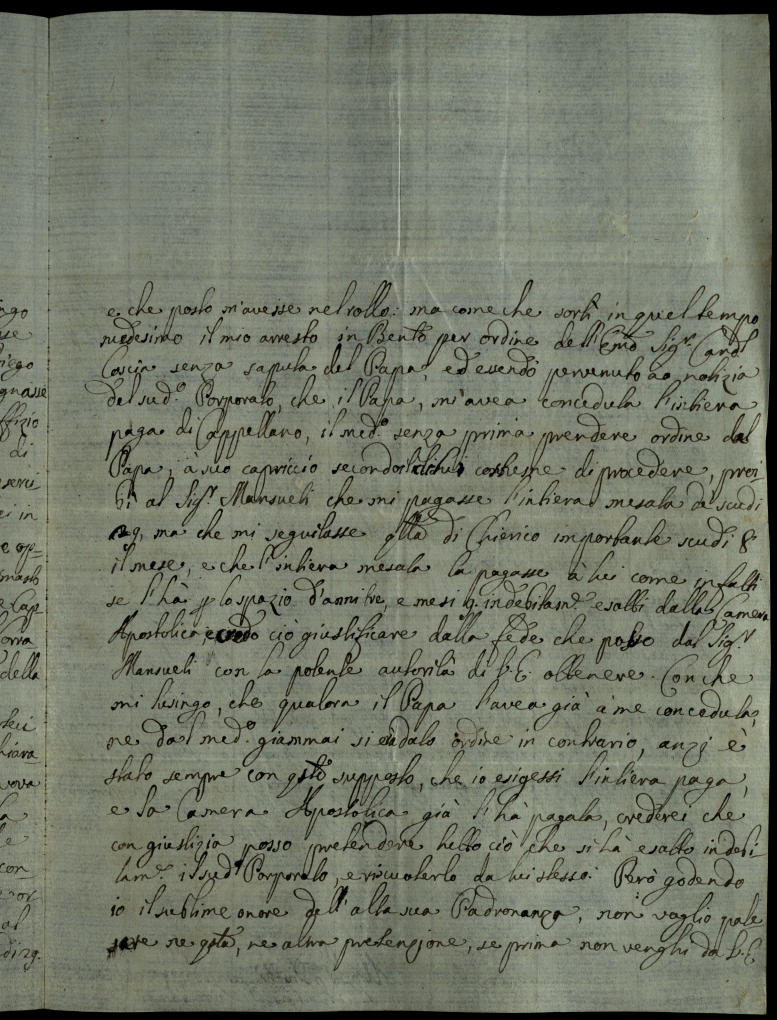 e che posto m'avesse nel rollo: ma come che sortì in quel tempo
medesimo il mio arresto in Bento per ordine dell'Emo Sigr. Cardl
Coscia senza saputa del Papa, ed essendo pervenuto a notizia
del sudo. Porporato, che il Papa, m'avea conceduta l'intiera
paga di Cappellano, il medo. senza prima prendere ordine dal
Papa, à suo capriccio secondo costume di procedere, proi-
bì al Sigr. Mansueti che mi pagasse l'intiera mesata di scudi
29, ma che mi seguitasse qlla di Chierico importante scudi 8
il mese, e che l'intiera mesata la pagasse à lui come infatti
se l'hà p lo spazio d'anni tre, e mesi indebitame. esatti dalla Camera
Apostolica, e credo ciò giustificare dalla fede che posso dal Sigr.
Mansueti con la potente autorità di V. E. ottenere. Con che
mi lusingo, che qualora il Papa l'avea già à me conceduta,
ne dal medo. giammai si è dato ordine in contrario, anzi è
stato sempre con qsto supposto, che io esigessi l'intiera paga,
e la Camera Apostolica già l'hà pagata, crederei che
con giustizia posso pretendere tutto ciò che si hà esatto indebi-
tame. il sudo. Porporato, e riscuoterlo da lui stesso. Però godendo
io il sublime onore dell'alta sua Padronanza, non voglio pale
sare ne qsta, ne altra pretenzione, se prima non venghi da V. E
ogo
sse
iego
gnasse
ffizio
di
servi
ei in
e op=
e Cap
orra
della
hiara
uova
la
le
con
nor
al
di 29.